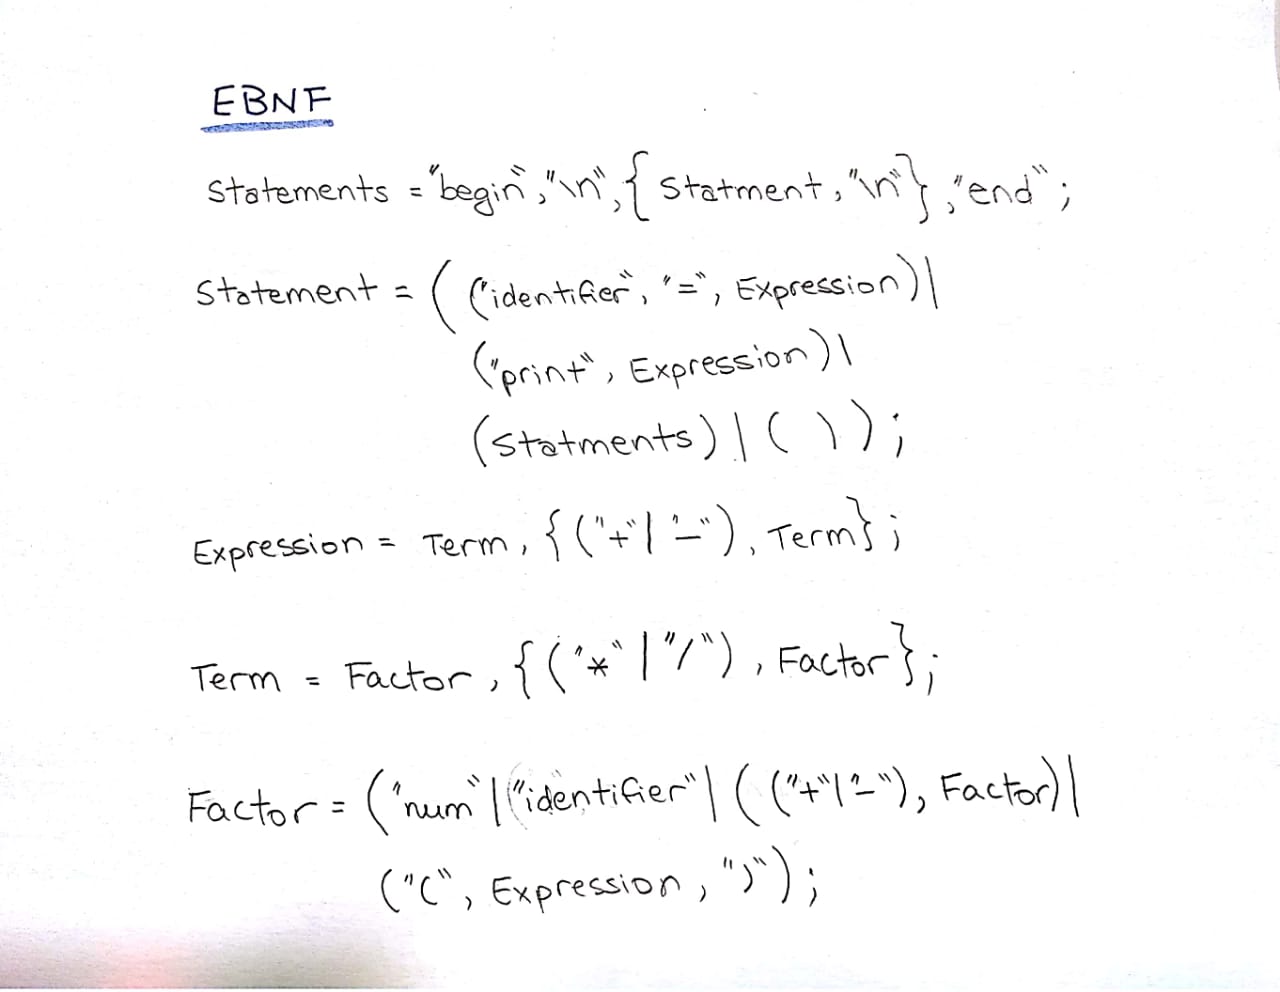 EBNF
Statements = "begin","\n",{Statment,"\n"},"end";
Statement = (("identifier", "=", Expression)|
("print", Expression)|
(Statments)|( ));
Expression = Term, {("+"|"-"), Term};
Term = Factor, {("*"|"/"), Factor};
Factor = ("num"|"identifier"|(("+"|"-"), Factor)|
("(", Expression, ")");